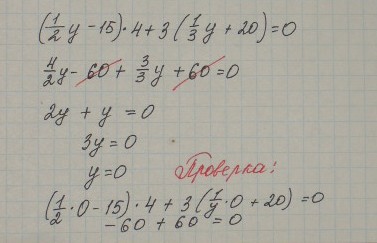 (1/2 y - 15) · 4 + 3 (1/3 y + 20) = 0
4/2 y - 60 + 3/3 y + 60 = 0
2y + y = 0
3y = 0
y = 0
Проверка:
(1/2 · 0 - 15) · 4 + 3 (1/y · 0 + 20) = 0
- 60 + 60 = 0